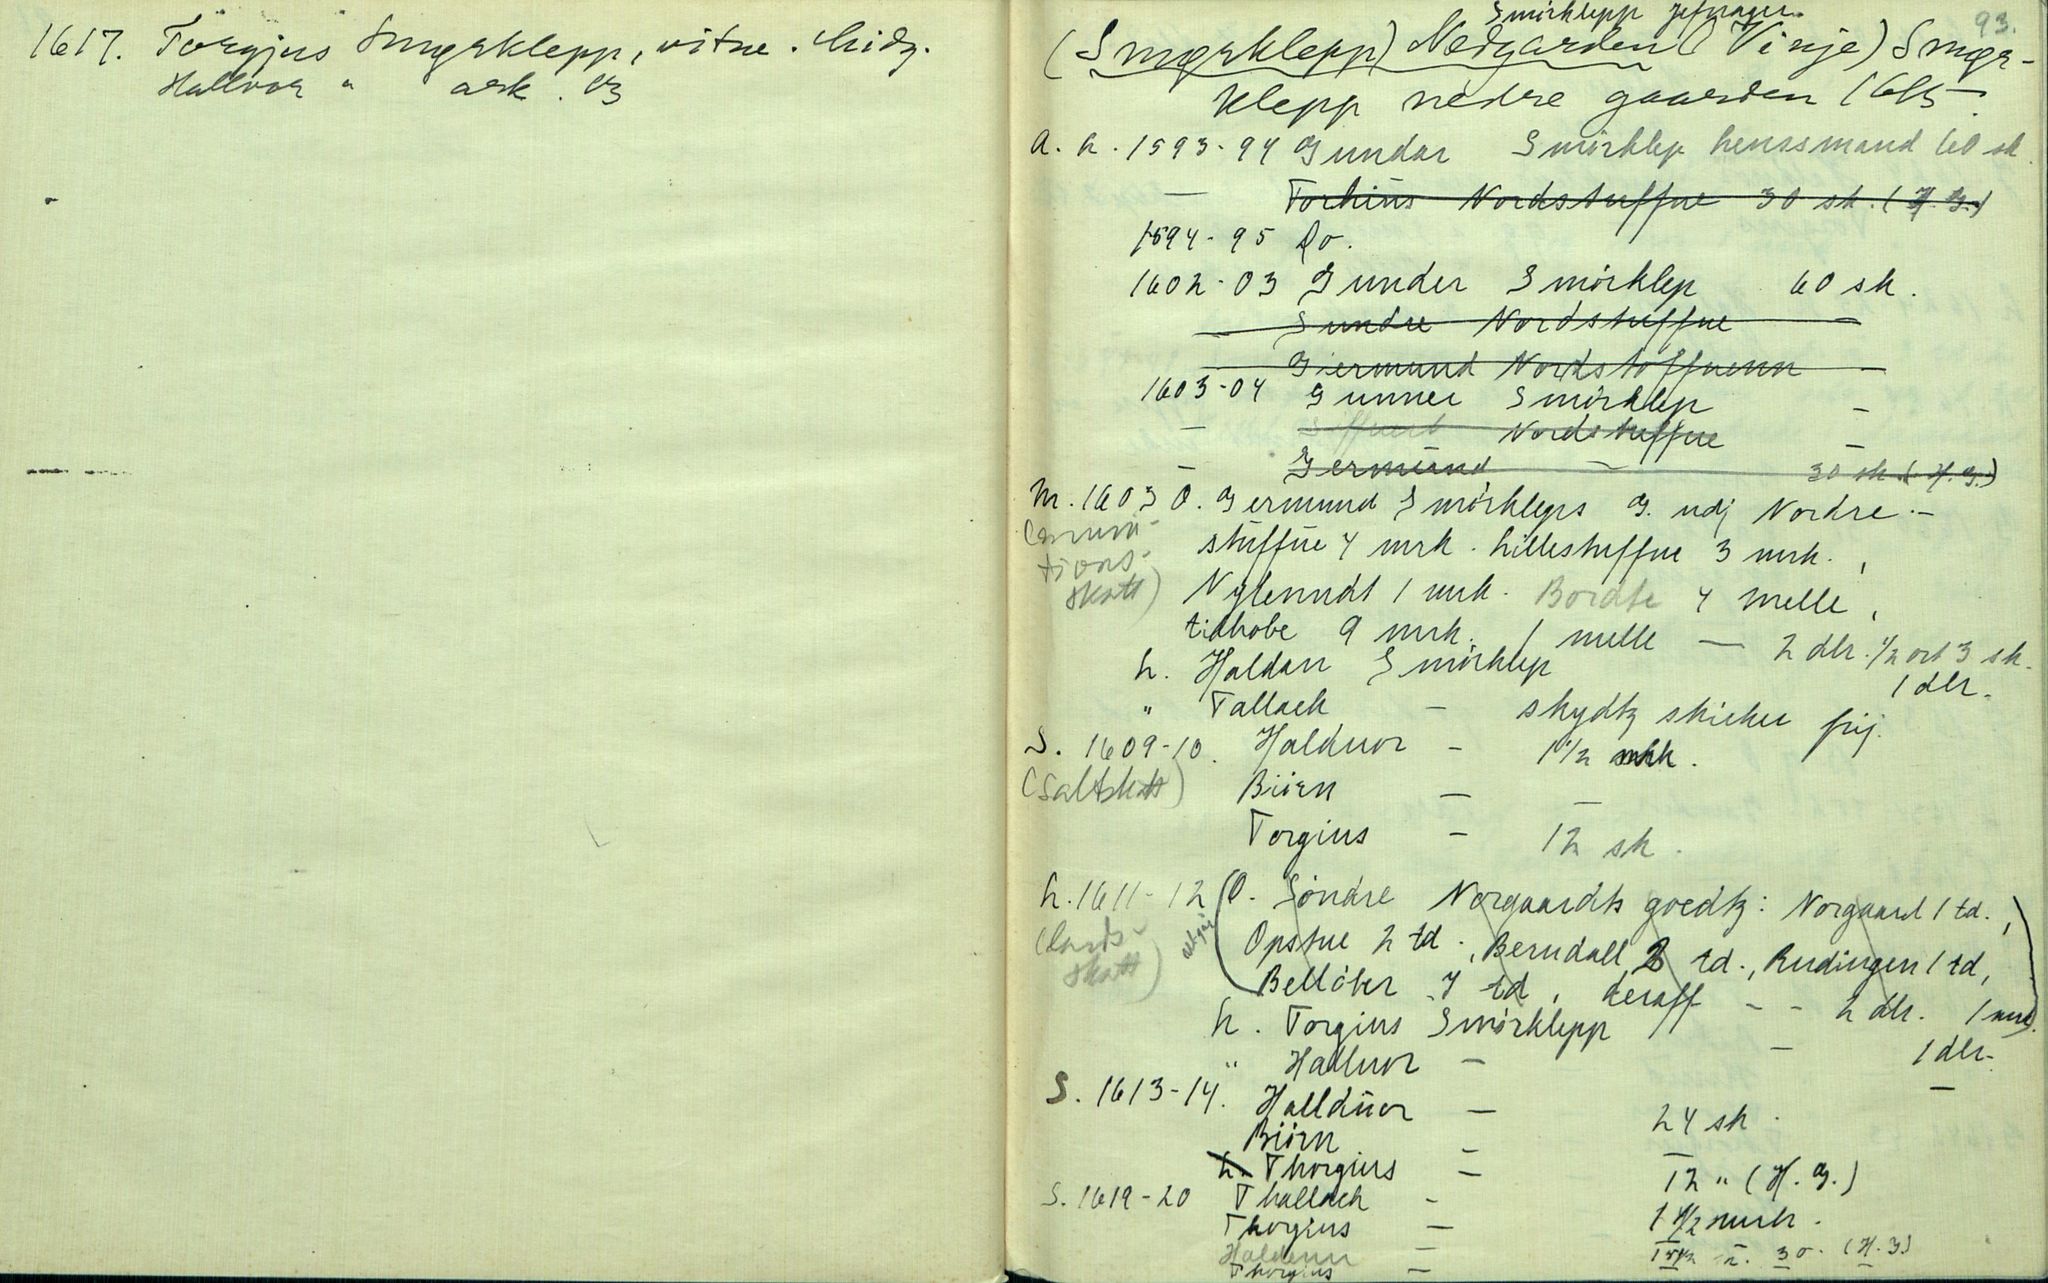 1617. Torgjus Smørklepp, vitne. Lidg.
Hallvor " ark. 03
93.
Smörklepp
(Smørklepp) Nedgarden (Vinje) Smør-
klepp nedre gaarden 1665
A. L. 1593-94 Gundar Smörklep lenssmand 60 sk.
— Torkius Nordstuffue 30 sk. (H. G.)
1594-95 Do.
1602-03 Gunder Smörklep 60 sk.
— Sundre Nordstuffue —
— Giermund Nordstoffuenn —
1603-04 Gunner Smörklep —
— Siffuert Nordstuffue —
— Germund — 30 sk. (H. G.)
M. 1603 O. Germund Smörkleps G. udj Nordre-
stuffue 4 mrk. Lillestuffue 3 mrk.,
Nylenndt 1 mrk. Bordte 4 melle,
tidhobe 9 mrk. 1 melle — 2 dlr. 1/2 ort 3 sk.
L. Haldan Smörklep 1 dlr.
" Tallack — skydtz skicker frij.
S. 1609-10. Halduor — 1 1/2 mrk.
(Saltskatt) Biörn — —
Torgius — 12 sk.
L. 1611-12 (O. Söndre Norgaardts goedtz: Norgaard 1 td.,
(lands-
skatt)
Opstue 2 td., Berudall 2 td., Rudingen 1 td,
Bellöber 7 td, deraff - - 2 dlr. 1 mrk)
L. Torgius Smörklepp — 1 dlr.
" Halluor — —
S. 1613-14. Halduor — 24 sk.
Biörn — —
L. Thorgius — 12 " (H. G.)
S. 1619-20 Thallach — 1 1/2 mrk.
Thorgius — —
Thorgius —